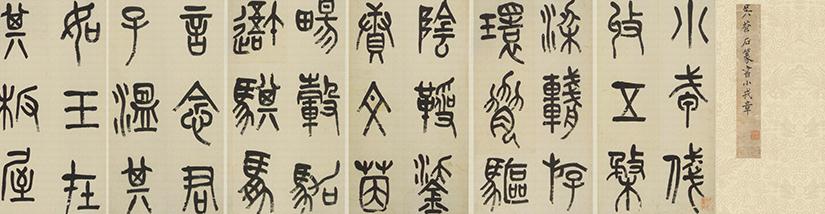 吳蒼石篆書小戎章
小戎俴
收五楘
梁輈游
環脅驅
陰靷鋈
續文茵
暢轂駕
我騏馵
言念君
子溫其
如玉在
其板屋